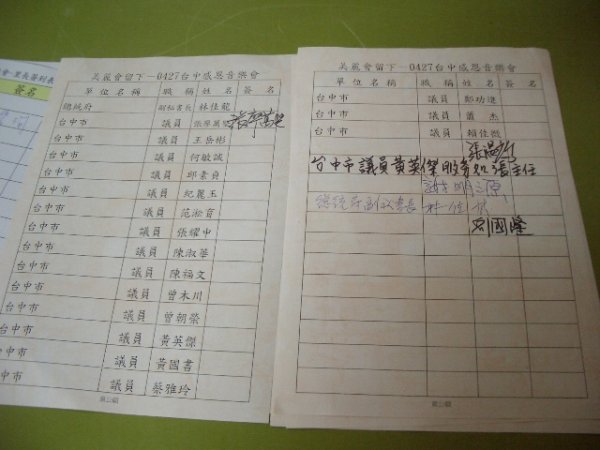 會-里長簽到表
簽名
美麗會留下－0427台中感恩音樂會
單位名稱 職稱 姓名 簽名
總統府 副秘書長 林佳龍
台中市 議員 張廖萬堅 張廖萬堅
台中市 議員 王岳彬
台中市 議員 何敏誠
台中市 議員 邱素貞
台中市 議員 紀麗玉
台中市 議員 范淞育
台中市 議員 張耀中
台中市 議員 陳淑華
台中市 議員 陳福文
台中市 議員 曾木川
台中市 議員 曾朝榮
台中市 議員 黃英傑
台中市 議員 黃國書
台中市 議員 蔡雅玲
美麗會留下－0427台中感恩音樂會
單位名稱 職稱 姓名 簽名
台中市 議員 鄭功進
台中市 議員 蕭杰
台中市 議員 賴佳微
台中市議員黃英傑服務處 主任
總統府副秘書長 林佳龍
劉國隆